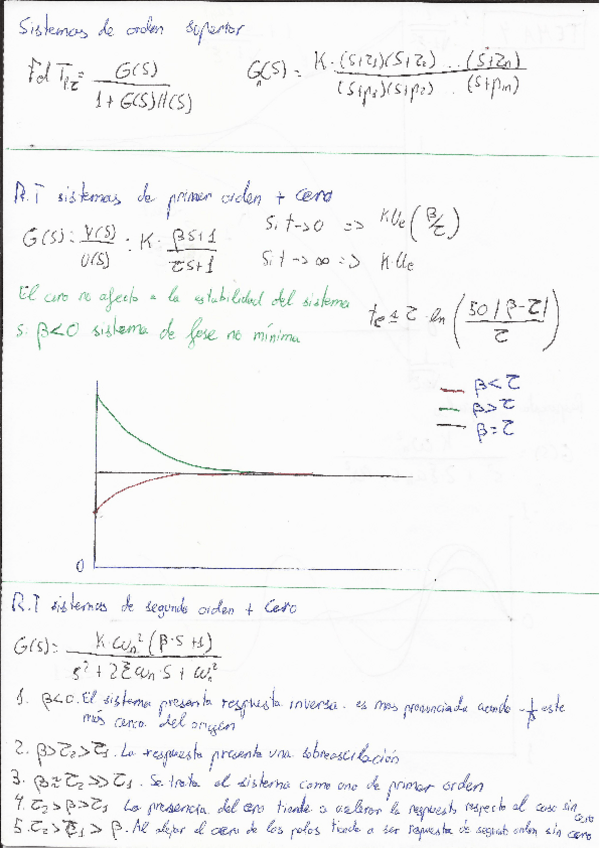 Sistemas de orden superior
FdT_LC = G(S) / 1 + G(S)H(S)
G_n(S) = K·(S+z1)(S+z2) .. (S+zn) / (S+p1)(S+p2) . (S+pm)
R.T sistemas de primer orden + cero
G(S) = Y(S)/U(S) = K · βS+1 / τS+1
Si t→0 => K·Ue (β/τ)
Si t→∞ => K·Ue
El cero no afecta a la estabilidad del sistema
Si β<0 sistema de fase no mínima
te ≤ τ · ln (50|β-τ| / τ)
β<τ
β>τ
β=τ
0
R.T sistemas de segundo orden + cero
G(S) = K·ωn² (β·S+1) / S² + 2ξωn·S + ωn²
1. β<0. El sistema presenta respuesta inversa. es mas pronunciada cuando -1/β este
más cerca del origen
2. β>τ2>τ1. La respuesta presenta una sobreoscilación
3. β≈τ2>>τ1. Se trata al sistema como uno de primer orden
4. τ2>β>τ1 La presencia del cero tiende a acelerar la respuesta respecto al caso sin cero
5. τ2>τ1>β. Al alejar el cero de los polos tiende a ser respuesta de segundo orden sin cero